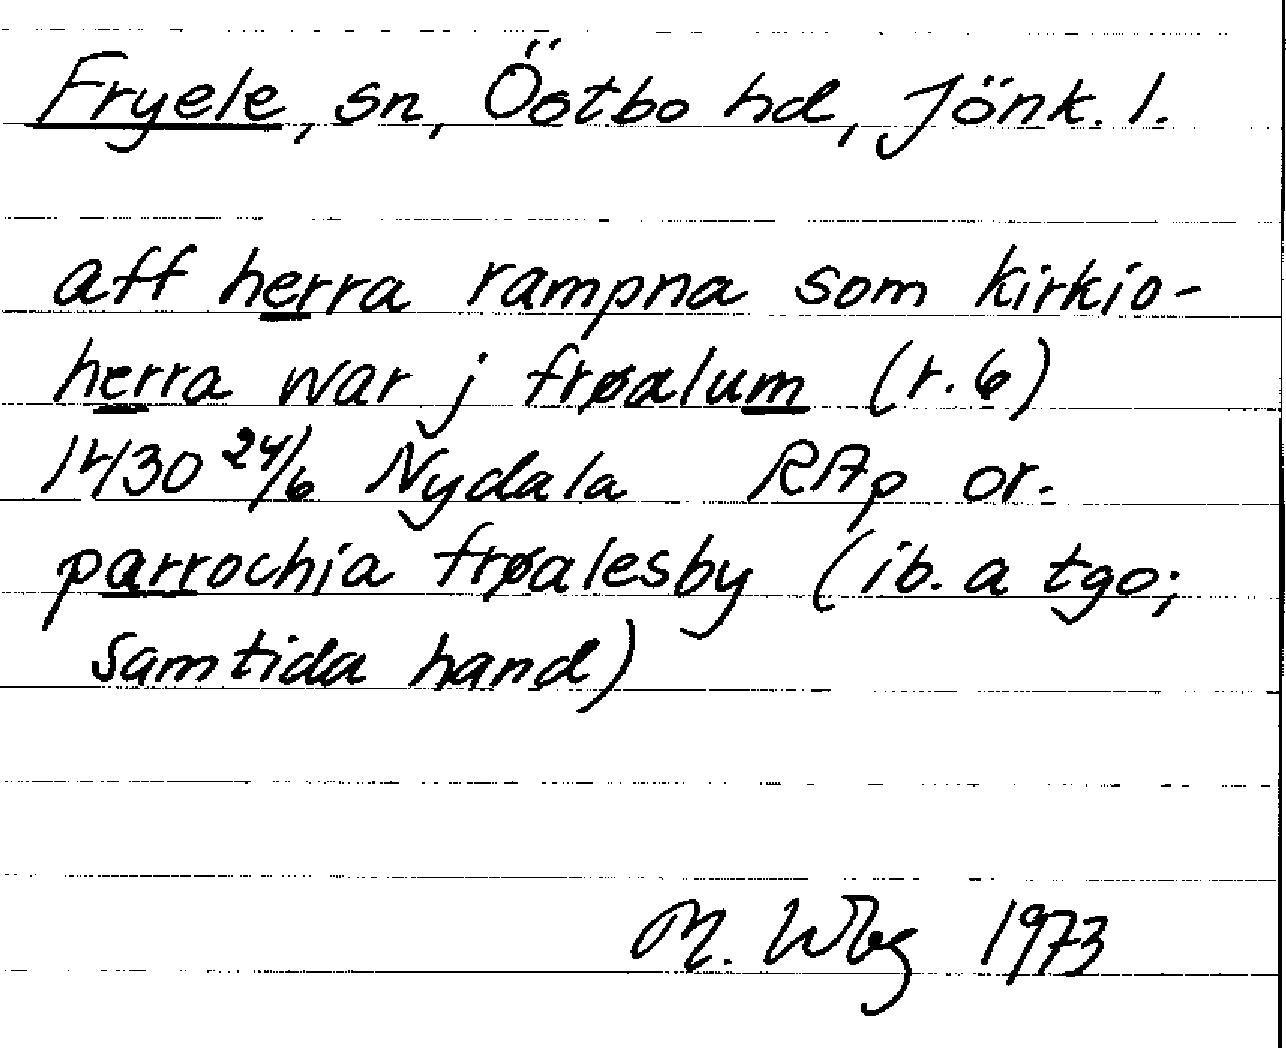 Fryele, sn, Östbo hd, Jönk. l.
aff herra rampna som kirkio-
herra war j frøalum (r. 6)
1430 24/6 Nydala RAp or.
parrochia frøalesby (ib. a tgo;
samtida hand)
M. Wbg 1973